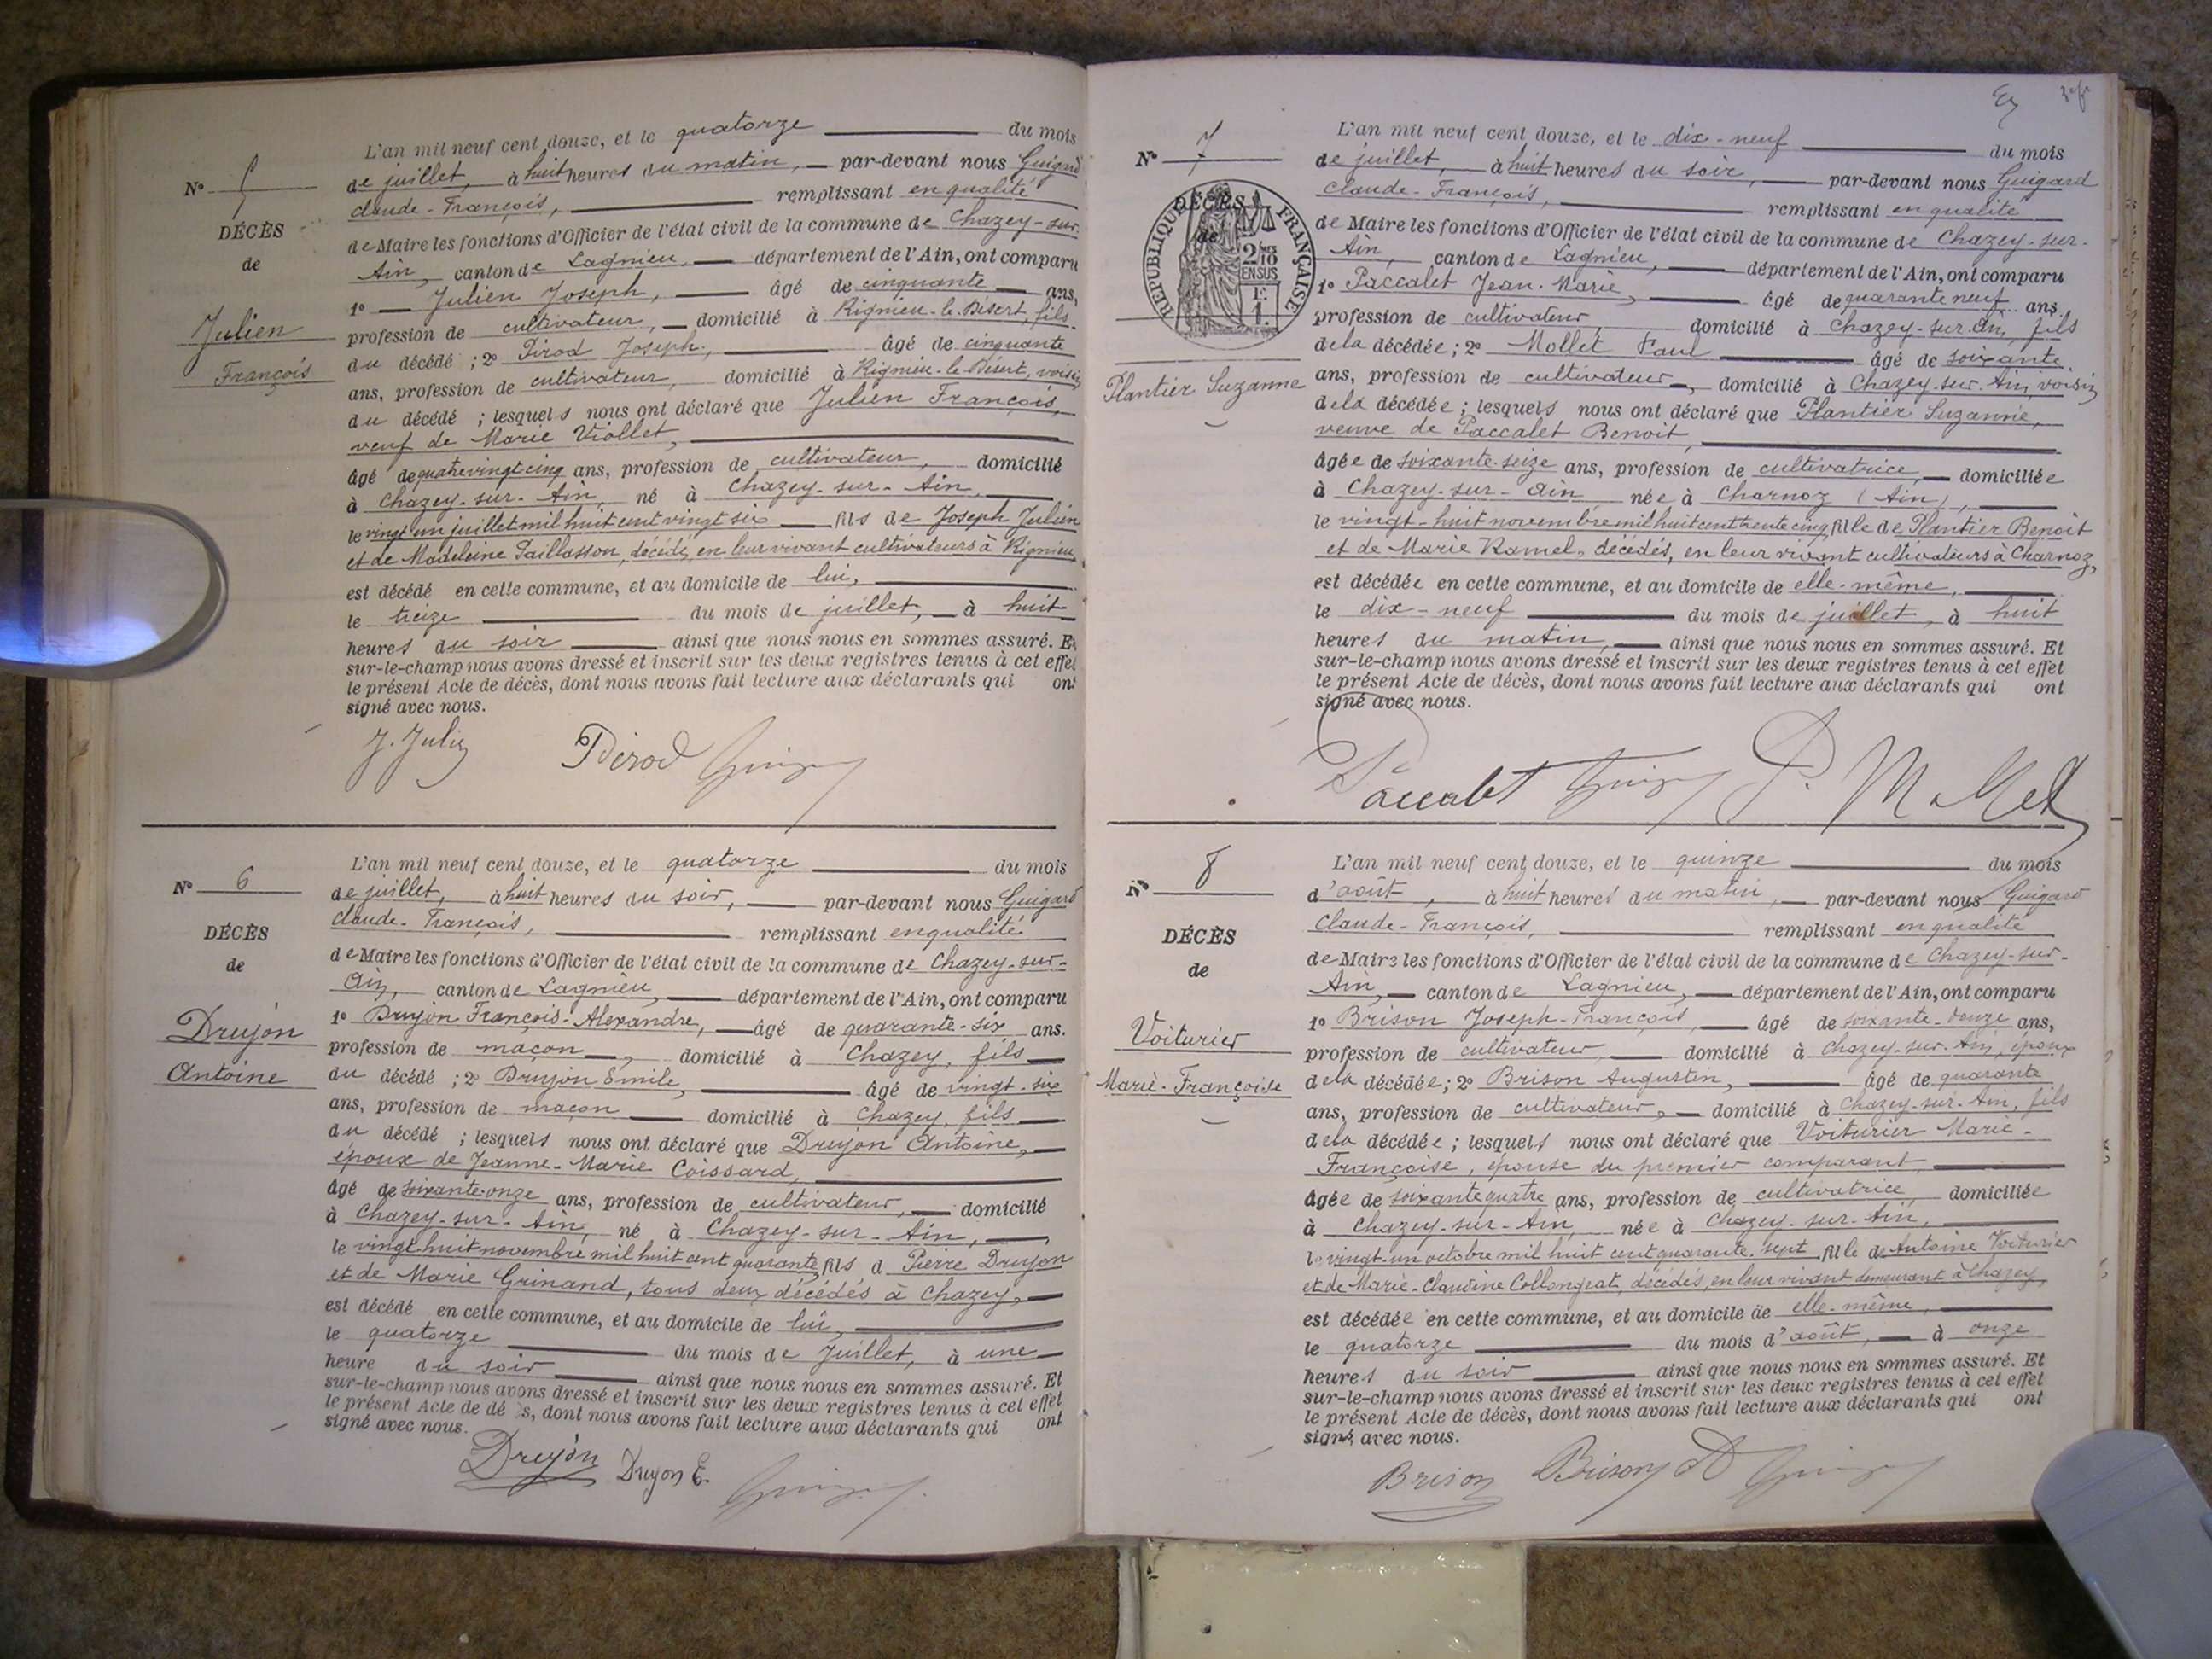 L'an mil neuf cent douze, et le quatorze du mois
de juillet, à huit heures du matin, par-devant nous Guigard
Claude-François, remplissant en qualité
de Maire les fonctions d'Officier de l'état civil de la commune de Chazey-sur-
Ain, canton de Lagnieu, département de l'Ain, ont comparu
1° Julien Joseph, âgé de cinquante ans,
profession de cultivateur, domicilié à Rignieu-le-Désert, fils
du décédé ; 2° Pirod Joseph, âgé de cinquante
ans, profession de cultivateur, domicilié à Rignieu-le-Désert, voisin
du décédé ; lesquels nous ont déclaré que Julien François,
veuf de Marie Viollet,
âgé de quatrevingt cinq ans, profession de cultivateur, domicilié
à Chazey-sur-Ain, né à Chazey-sur-Ain,
le vingt un juillet mil huit cent vingt six fils de Joseph Julien
et de Madeleine Paillasson, décédés, en leur vivant cultivateurs à Rignieu
est décédé en cette commune, et au domicile de lui,
le treize du mois de juillet, à huit
heures du soir ainsi que nous nous en sommes assuré. Et
sur-le-champ nous avons dressé et inscrit sur les deux registres tenus à cet effet
le présent Acte de décès, dont nous avons fait lecture aux déclarants qui ont
signé avec nous.
N°
DÉCÈS
de
Julien
François
J. Julien Pirod Guigard
L'an mil neuf cent douze, et le quatorze du mois
de juillet, à huit heures du soir, par-devant nous Guigard
Claude-François, remplissant en qualité
de Maire les fonctions d'Officier de l'état civil de la commune de Chazey-sur-
Ain, canton de Lagnieu, département de l'Ain, ont comparu
1° Drujon François-Alexandre, âgé de quarante-six ans.
profession de maçon, domicilié à Chazey, fils
du décédé ; 2° Drujon Emile, âgé de vingt-six
ans, profession de maçon domicilié à Chazey, fils
du décédé ; lesquels nous ont déclaré que Drujon Antoine,
époux de Jeanne-Marie Coissard,
âgé de soixante-onze ans, profession de cultivateur, domicilié
à Chazey-sur-Ain, né à Chazey-sur-Ain,
le vingt-huit novembre mil huit cent quarante fils d Pierre Drujon
et de Marie Grinand, tous deux décédés à Chazey,
est décédé en cette commune, et au domicile de lui,
le quatorze du mois de Juillet, à une
heure du soir ainsi que nous nous en sommes assuré. Et
sur-le-champ nous avons dressé et inscrit sur les deux registres tenus à cet effet
le présent Acte de dé s, dont nous avons fait lecture aux déclarants qui ont
signé avec nous.
N° 6
DÉCÈS
de
Drujon
Antoine
Drujon Drujon E. Guigard
L'an mil neuf cent douze, et le dix-neuf du mois
de juillet, à huit heures du soir, par-devant nous Guigard
Claude-François, remplissant en qualité
de Maire les fonctions d'Officier de l'état civil de la commune de Chazey-sur-
Ain, canton de Lagnieu, département de l'Ain, ont comparu
1° Paccalet Jean-Marie, âgé de quarante neuf ans,
profession de cultivateur, domicilié à Chazey-sur-Ain, fils
de la décédée ; 2° Mollet Paul âgé de soixante
ans, profession de cultivateur, domicilié à Chazey-sur-Ain, voisin
de la décédée ; lesquels nous ont déclaré que Plantier Suzanne,
veuve de Paccalet Benoit,
âgée de soixante-seize ans, profession de cultivatrice, domiciliée
à Chazey-sur-Ain née à Charnoz (Ain),
le vingt-huit novembre mil huit cent trente cinq fille de Plantier Benoit
et de Marie Ramel, décédés, en leur vivant cultivateurs à Charnoz,
est décédée en cette commune, et au domicile de elle-même,
le dix-neuf du mois de juillet, à huit
heures du matin, ainsi que nous nous en sommes assuré. Et
sur-le-champ nous avons dressé et inscrit sur les deux registres tenus à cet effet
le présent Acte de décès, dont nous avons fait lecture aux déclarants qui ont
signé avec nous.
N° 7
DÉCÈS
de
RÉPUBLIQUE FRANÇAISE
2/10
EN SUS
F.
1.
Plantier Suzanne
Paccalet Guigard P. Mollet
L'an mil neuf cent douze, et le quinze du mois
d'août, à huit heures du matin, par-devant nous Guigard
Claude-François, remplissant en qualité
de Maire les fonctions d'Officier de l'état civil de la commune de Chazey-sur-
Ain, canton de Lagnieu, département de l'Ain, ont comparu
1° Brison Joseph-François, âgé de soixante-douze ans,
profession de cultivateur, domicilié à Chazey-sur-Ain, époux
de la décédée ; 2° Brison Augustin, âgé de quarante
ans, profession de cultivateur, domicilié à Chazey-sur-Ain, fils
de la décédée ; lesquels nous ont déclaré que Voiturier Marie-
Françoise, épouse du premier comparant,
âgée de soixante quatre ans, profession de cultivatrice domiciliée
à Chazey-sur-Ain, née à Chazey-sur-Ain,
le vingt-un octobre mil huit cent quarante-sept fille de Antoine Voiturier
et de Marie-Claudine Collongeat, décédés, en leur vivant demeurant à Chazey,
est décédée en cette commune, et au domicile de elle-même,
le quatorze du mois d'août, à onze
heures du soir ainsi que nous nous en sommes assuré. Et
sur-le-champ nous avons dressé et inscrit sur les deux registres tenus à cet effet
le présent Acte de décès, dont nous avons fait lecture aux déclarants qui ont
signé avec nous.
N° 8
DÉCÈS
de
Voiturier
Marie-Françoise
Brison Brison A Guigard